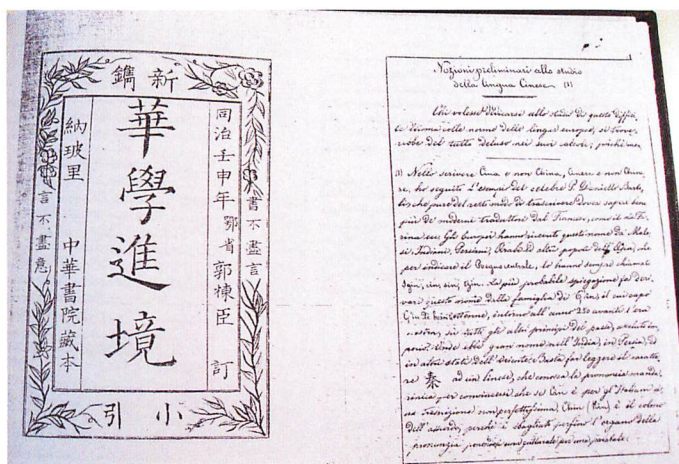 新鐫
書不盡言
同治壬申年 鄂省 郭棟臣 訂
華學進境
納玻里 中華書院藏本
言不盡意
小引
Nozioni preliminari allo studio
della lingua Cinese (1)
Chi volesse dedicarsi allo studio di questo diffici-
le idioma colle norme delle lingue europee, si trove-
rebbe del tutto deluso nei suoi calcoli, poichè non
(1) Nello scrivere Cina e non China, Cinese e non Chine-
re, ho seguito l'esempio del celebre P. Daniello Barto-
li, che pure del resto modo di trascrivere dovea sapere ben
più de' moderni traduttori dal Francese, come è la Fa-
rina ecc. Gli Europei hanno ricevuto questo nome da' Male-
si, Indiani, Persiani, Arabi ed altri popoli dell'Asia, che
per indicare il Groupe centrale, lo hanno sempre chiamato
Tsin, cin, sin, Tjin. La più probabile spiegazione fa deri-
vare questo nome dalla famiglia di Tsin, il cui capo
intorno all'anno 250 avanti l'era
nostra, su tutti gli altri principi di paesi,
onde ebbe gran nome nell'India, in Persia, ed
in altri stati dell'Oriente. Basta far leggere il caratte-
re 秦 ad un Cinese, che conosca la pronunzia manda-
rinica per convincersi che se Cina è per gl'Italiani
una trascrizione non perfettissima, China (Kina) è il colmo
dell'assurdo, perchè è sbagliato perfino l'organo della
pronunzia, ponendosi una gutturale per una palatale.